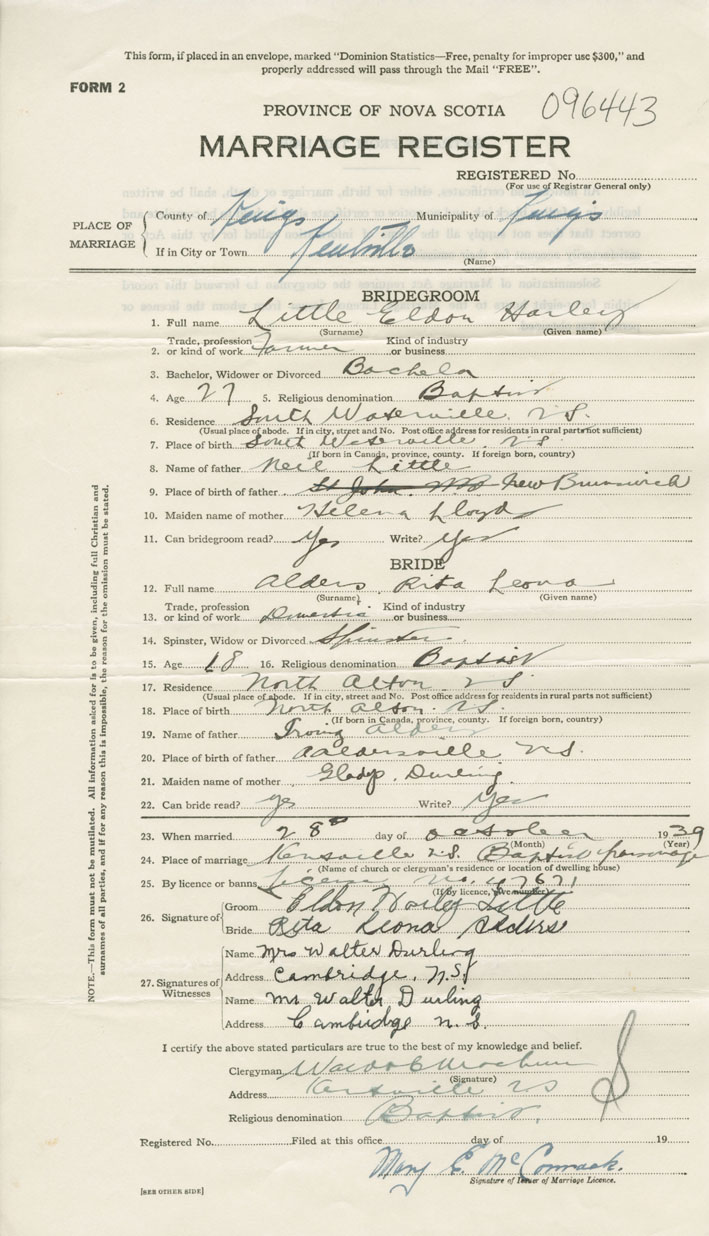 This form, if placed in an envelope, marked "Dominion Statistics—Free, penalty for improper use $300," and
properly addressed will pass through the Mail "FREE".
FORM 2
PROVINCE OF NOVA SCOTIA 096443
MARRIAGE REGISTER
REGISTERED No.
(For use of Registrar General only)
PLACE OF MARRIAGE
County of Kings Municipality of Kings
If in City or Town Kentville
(Name)
BRIDEGROOM
1. Full name Little Eldon Harley
(Surname) (Given name)
2. Trade, profession or kind of work Farmer Kind of industry or business
3. Bachelor, Widower or Divorced Bachelor
4. Age 27 5. Religious denomination Baptist
6. Residence South Waterville. N.S.
(Usual place of abode. If in city, street and No. Post office address for residents in rural parts not sufficient)
7. Place of birth South Waterville. N.S.
(If born in Canada, province, county. If foreign born, country)
8. Name of father Neil Little
9. Place of father's birth St John. New Brunswick
10. Maiden name of mother Helena Lloyd
11. Can bridegroom read? Yes Write? Yes
BRIDE
12. Full name Alders Rita Leona
(Surname) (Given name)
13. Trade, profession or kind of work Domestic Kind of industry or business
14. Spinster, Widow or Divorced Spinster
15. Age 18 16. Religious denomination Baptist
17. Residence North Alton N.S.
(Usual place of abode. If in city, street and No. Post office address for residents in rural parts not sufficient)
18. Place of birth North Alton. N.S.
(If born in Canada, province, county. If foreign born, country)
19. Name of father Irving Alders
20. Place of birth of father Aaldersville N.S.
21. Maiden name of mother Gladys. Durling
22. Can bride read? yes Write? Yes
23. When married 28th day of October 1939
(Month) (Year)
24. Place of marriage Kentville N.S. Baptist parsonage
(Name of church or clergyman's residence or location of dwelling house)
25. By licence or banns License No. 47671
(If by licence, give number)
26. Signature of
Groom Eldon Harley Little
Bride Rita Leona Alders
27. Signatures of Witnesses
Name Mrs Walter Durling
Address Cambridge, N.S.
Name Mr Walter Durling
Address Cambridge N.S.
I certify the above stated particulars are true to the best of my knowledge and belief.
Clergyman
(Signature)
Address Kentville N S
Religious denomination Baptist.
Registered No. Filed at this office day of 19
Mary E. McCormack.
Signature of Issuer of Marriage Licence.
[SEE OTHER SIDE]
NOTE.—This form must not be mutilated. All information asked for is to be given, including full Christian and
surnames of all parties, and if for any reason this is impossible, the reason for the omission must be stated.